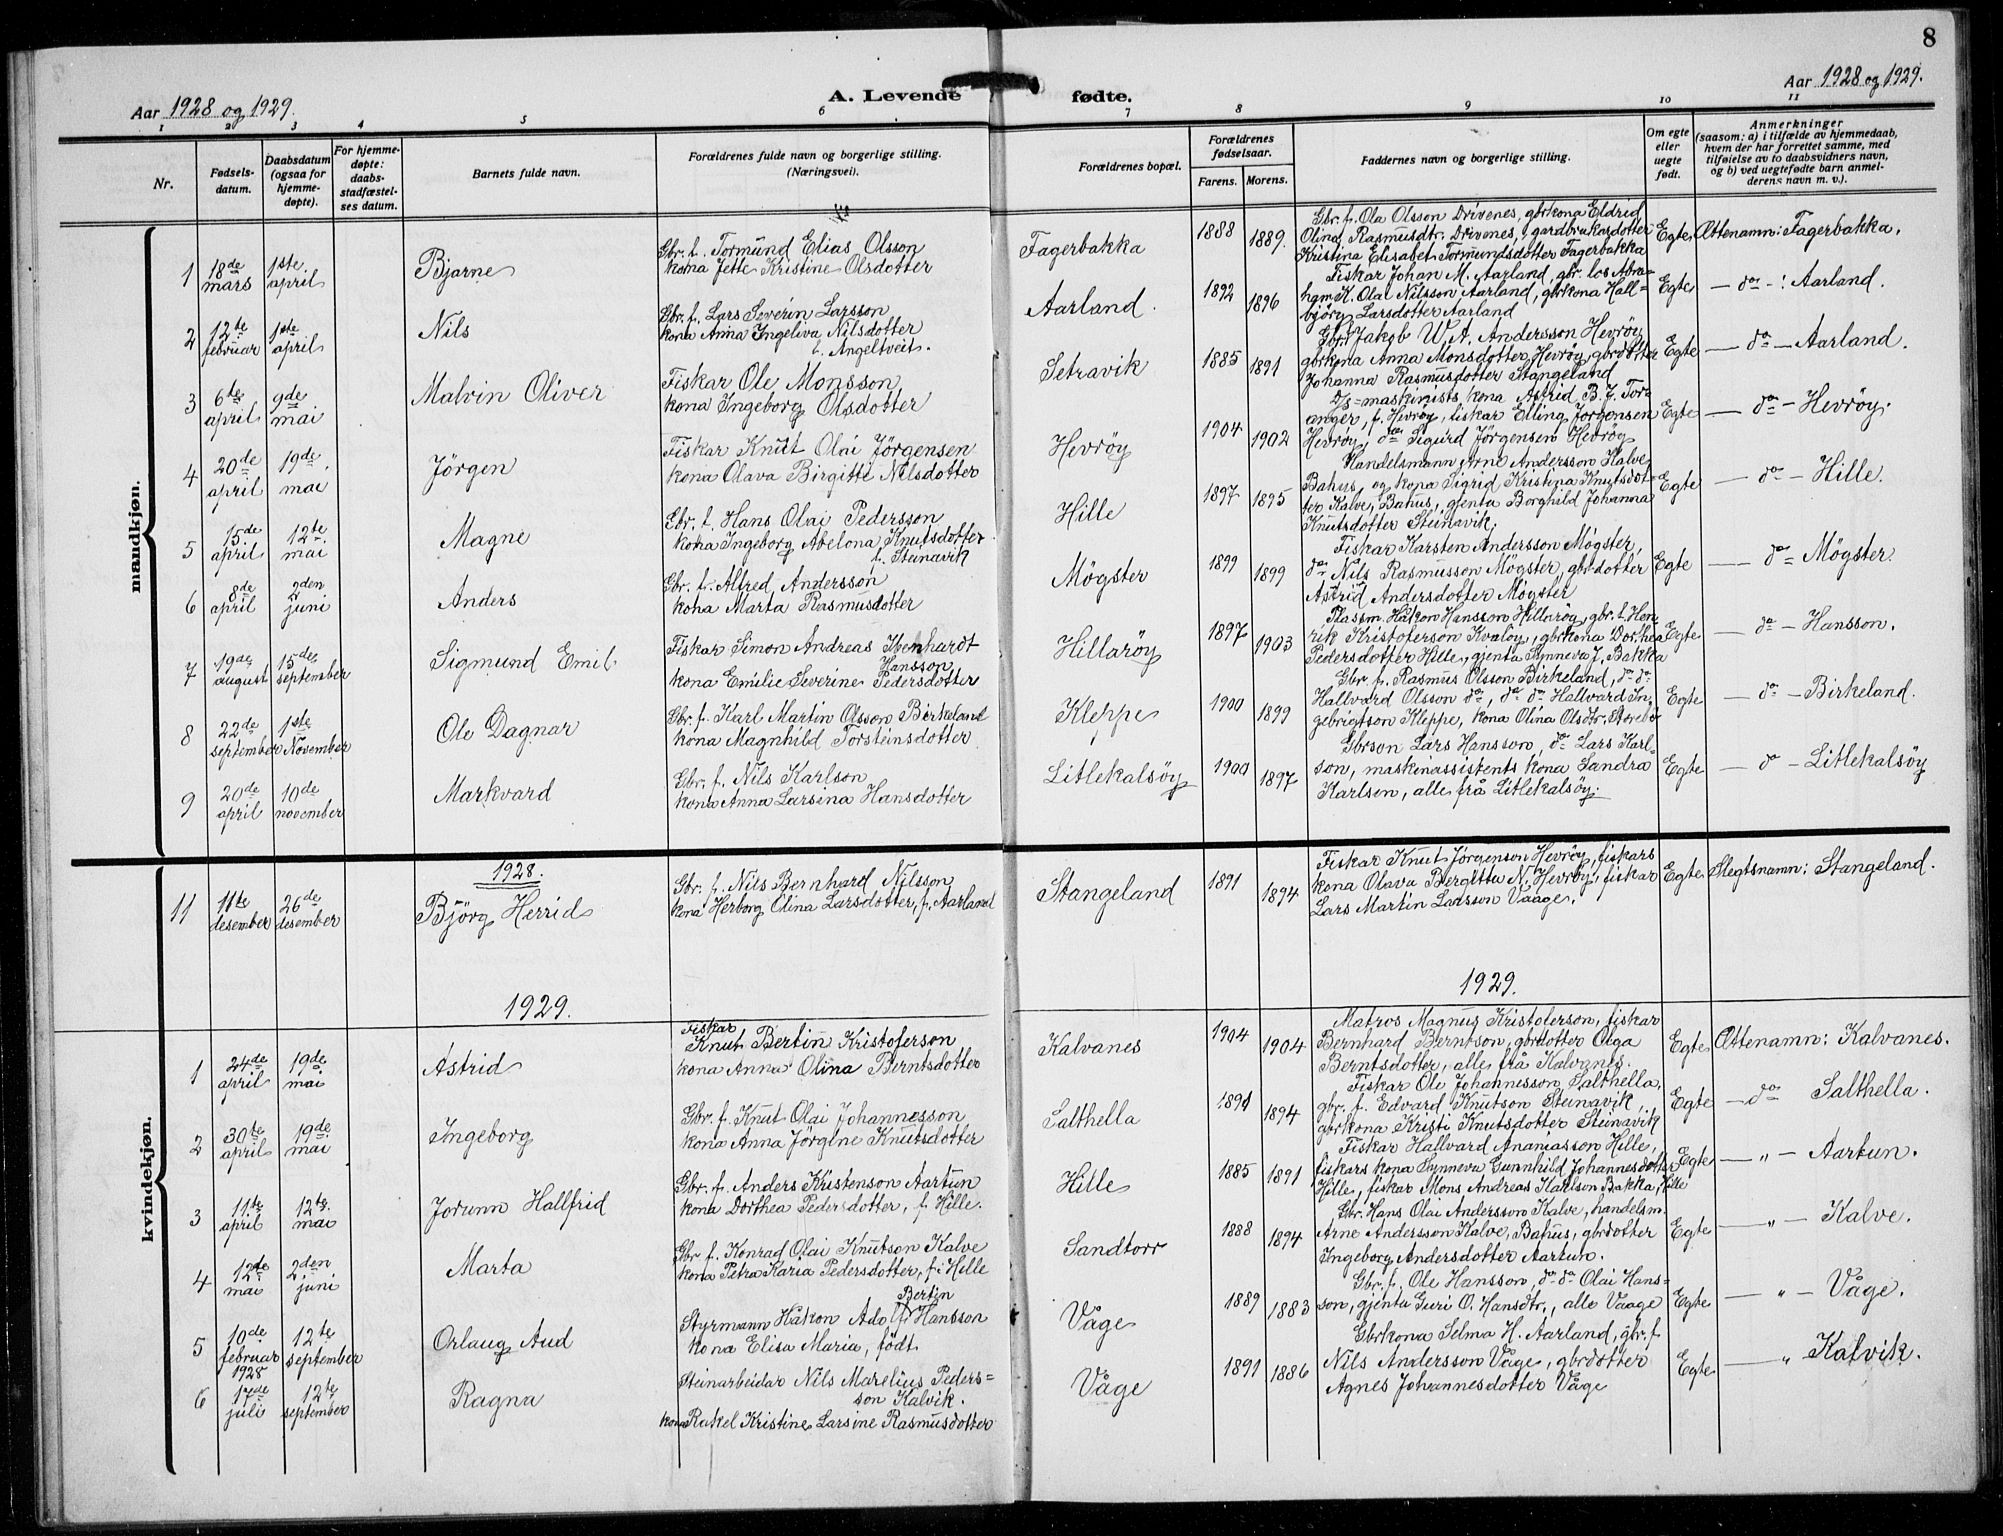 8
Aar 1928 og 1929.
A. Levende fødte.
Aar 1928 og 1929.
1 2 3 4 5 6 7 8 9 10 11
Nr.
Fødsels-
datum.
Daabsdatum
(ogsaa for
hjemme-
døpte).
For hjemme-
døpte:
daabs-
stadfæstel-
ses datum.
Barnets fulde navn.
Forældrenes fulde navn og borgerlige stilling.
(Næringsvei).
Forældrenes bopæl.
Forældrenes
fødselsaar.
Farens. Morens.
Faddernes navn og borgerlige stilling.
Om egte
eller
uegte
født.
Anmerkninger
(saasom: a) i tilfælde av hjemmedaab,
hvem der har forrettet samme, med
tilføielse av to daabsvidners navn,
og b) ved uegtefødte barn anmel-
derens navn m. v.).
mandkjøn.
1 18de mars 1ste april Bjarne
Gbr. f. Tormund Elias Olsson
kona Jette Kristine Olsdotter
Fagerbakka 1888 1889.
Gbr. f. Ola Olsson Drivenes, gbrkona Eldrid
Olina Rasmusdtr. Drivenes, gardbrukardotter
Kristina Elisabet Tormundsdotter Fagerbakka
Egte Ættenamn: Fagerbakka.
2 12te februar 1ste april Nils
Gbr. f. Lars Severin Larsson
kona Anna Ingeliva Nilsdotter
f. Angeltveit.
Aarland. 1892 1896
Fiskar Johan M. Aarland, gbr. los Abra-
ham K. Olai Nilsson Aarland, gbrkona Hall-
björg Larsdotter Aarland
Egte — do - : Aarland.
3 6te april 9de mai Malvin Oliver
Fiskar Ole Monsson
kona Ingeborg Olsdotter
Setravik 1885 1891
Gbr. Jakob W. A. Andersson Hevröy
gbrkona Anna Monsdotter Hevröy, gbrdotter
Johanna Rasmusdotter Stangeland
Egte — do — Aarland.
4 20de april 19de mai Jörgen
Fiskar Knut Olai Jörgensen
kona Olava Birgitte Nilsdotter
Hevröy 1904 1902
D/s-maskinists kona Astrid B. J. Tor-
anger, f. Hevröy, fiskar Elling Jörgensen
Hevröy, do Sigurd Jörgensen Hevröy
Egte — do - Hevröy.
5 15de april 12te mai Magne
Gbr. f. Hans Olai Pedersson
kona Ingeborg Abelona Knutsdotter
f. Steinavik
Hille 1897 1895
Handelsmann Arne Andersson Kalve,
Bahus, og kona Sigrid Kristina Knutsdot-
ter Kalve, Bahus, gjenta Borghild Johanna
Knutsdotter Steinavik.
Egte — do - Hille.
6 8de april 2den juni Anders
Gbr. f. Alfred Andersson
kona Marta Rasmusdotter
Mögster 1899 1899
Fiskar Karsten Andersson Mögster,
do Nils Rasmusson Mögster, gbrdotter
Astrid Andersdotter Mögster
Egte — do - Mögster.
7 19de august 15de september Sigmund Emil
Fiskar Simon Andreas
Hansson
kona Emilie Severine Pedersdotter
Hillaröy 1897 1903
Plassm. Håkon Hansson Hillaröy, gbr. f. Hen-
rik Kristoferson Kvalöy, gbrkona Dorthea
Pedersdotter Hille, gjenta Synneva J. Bakka
Egte — do - Hansson.
8 22de september 1ste November Ole Dagnar
Gbr. f. Karl Martin Olsson Birkeland
kona Magnhild Torsteinsdotter
Kleppe 1900 1899
Gbr. f. Rasmus Olsson Birkeland, do do
Hallvard Olsson do, do do Hallvard In-
gebrigtson Kleppe, kona Olina Olsdtr. Storebö
Egte — do - Birkeland.
9 20de april 10de november Markvard
Gbr. f. Nils Karlson
kona Anna Larsina Hansdotter
Litlekalsöy 1900 1897
Gbrson Lars Hansson, do Lars Karl-
son, maskinassistents kona Sandra
Karlsen, alle frå Litlekalsöy.
Egte — do - Litlekalsöy
kvindekjøn.
1928.
11 11te desember 26de desember Björg Herrid
Gbr. f. Nils Bernhard Nilsson
kona Herborg Olina Larsdotter, f. Aarland
Stangeland 1891 1894
Fiskar Knut Jörgenson Hevröy, fiskars
kona Olava Bergitta N. Hevröy, fiskar
Lars Martin Larsson Vaage.
Egte Slegtsnamn: Stangeland.
1929. 1929.
1 24de april 19de mai Astrid
Fiskar
Knut Bertin Kristoferson
kona Anna Olina Berntsdotter
Kalvanes 1904 1904
Matros Magnus Kristoferson, fiskar
Bernhard Berntson, gbrdotter Olga
Berntsdotter, alle frå Kalvanes.
Egte Ættenamn: Kalvanes.
2 30te april 19de mai Ingeborg
Gbr. f. Knut Olai Johannesson
kona Anna Jörgine Knutsdotter
Salthella 1891 1894
Fiskar Ole Johannesson Salthella,
gbr. f. Edvard Knutson Steinavik,
gbrkona Kristi Knutsdotter Steinavik
Egte — do Salthella.
3 11te april 12te mai Jorunn Hallfrid
Gbr. f. Anders Kristenson Aartun
kona Dorthea Pedersdotter, f. Hille.
Hille 1885 1891
Fiskar Hallvard Ananiasson Hille,
fiskars kona Synneva Gunnhild Johannesdotter
Hille, fiskar Mons Andreas Karlson Bakka, Hille
Egte — „ — Aartun.
4 12te mai 2den juni Marta
Gbr f. Konrad Olai Knutson Kalve
kona Petra Karia Pedersdotter, f. Hille
Sandtorv 1888 1894
Gbr. Hans Olai Andersson Kalve, handelsm.
Arne Andersson Kalve, Bahus, gbrdotter
Ingeborg Andersdotter Aartun.
Egte — „ — Kalve.
5 10de februar 1928 12te september Orlaug Aud
Bertin
Styrmann Håkon Adolf Hansson
kona Elisa Maria, født
Våge 1889 1883
Gbr. f. Ole Hansson, do do Olai Hans-
son, gjenta Guri O. Hansdtr., alle Vaage
Egte — „ — Våge.
6 17de juli 12te september Ragna
Steinarbeidar Nils Marelius Peders-
son Kalvik.
kona Rakel Kristine Larsine Rasmusdotter
Våge 1891 1886
Gbrkona Selma H. Aarland, gbr. f.
Nils Andersson Våge, gbrdotter
Agnes Johannesdotter Våge
Egte — „ Kalvik.